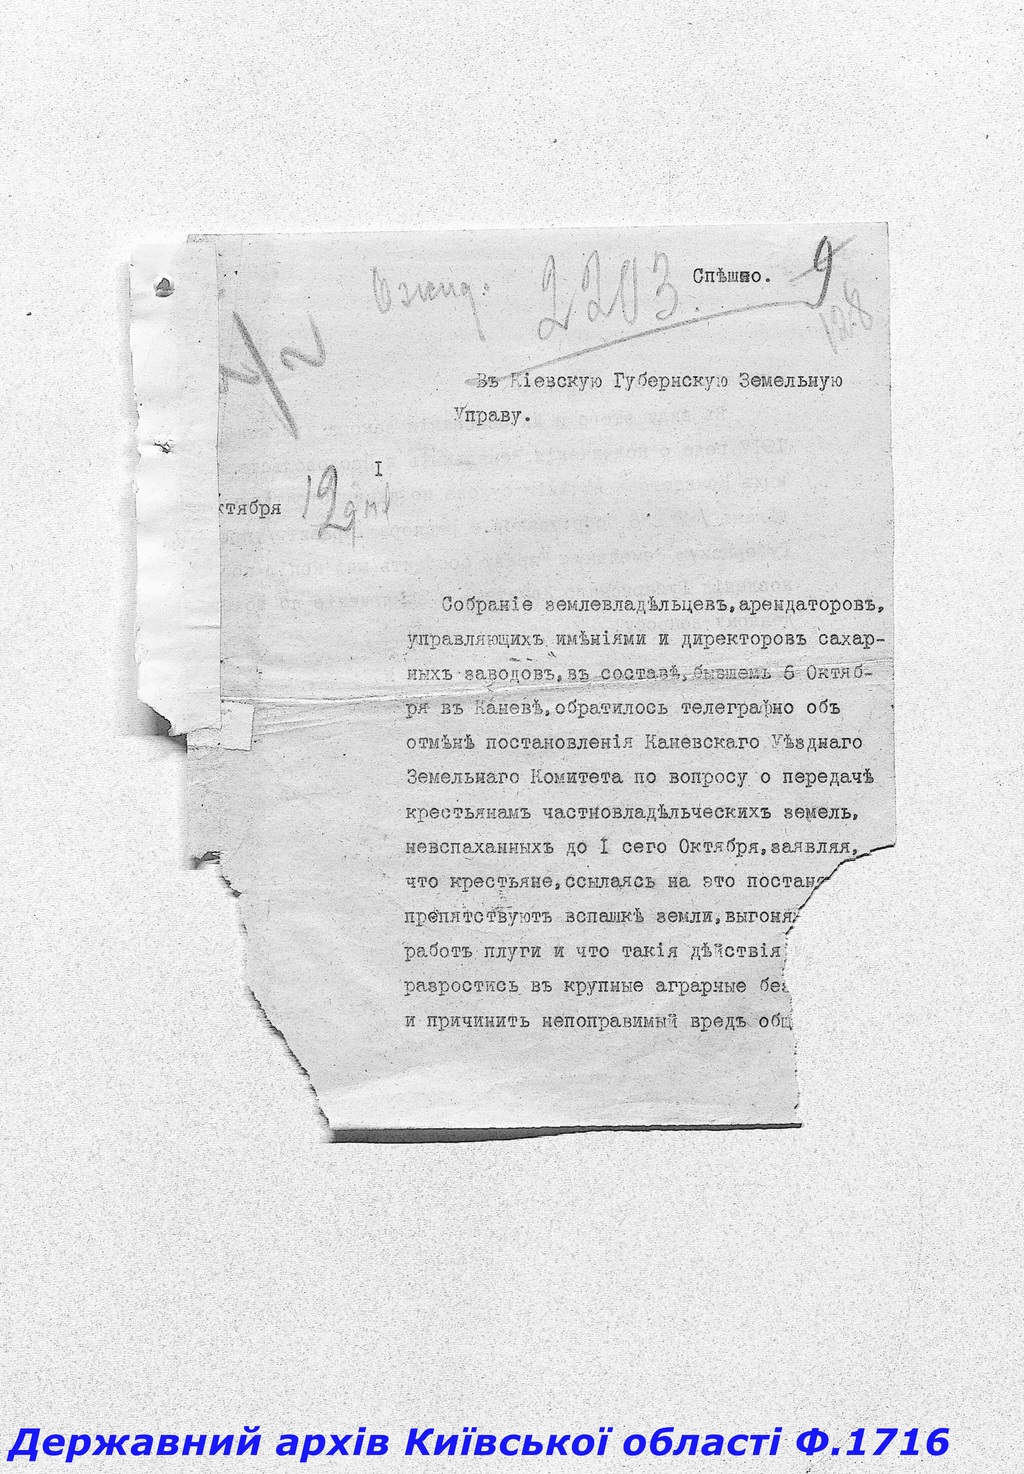 2203
Спѣшно.
9
128
Въ Кіевскую Губернскую Земельную
Управу.
I
ктября 12 дня
Собраніе землевладѣльцевъ,арендаторовъ,
управляющихъ имѣніями и директоровъ сахар-
ныхъ заводовъ,въ составѣ,бывшемъ 6 Октяб-
ря въ Каневѣ,обратилось телеграфно объ
отмѣнѣ постановленія Каневскаго Уѣзднаго
Земельнаго Комитета по вопросу о передачѣ
крестьянамъ частновладѣльческихъ земель,
невспаханныхъ до I сего Октября,заявляя,
что крестьяне,ссылаясь на это постан
препятствуютъ вспашкѣ земли,выгоня
работъ плуги и что такія дѣйствія
разростись въ крупные аграрные без
и причинить непоправимый вредъ общ
Державний архів Київської області Ф.1716